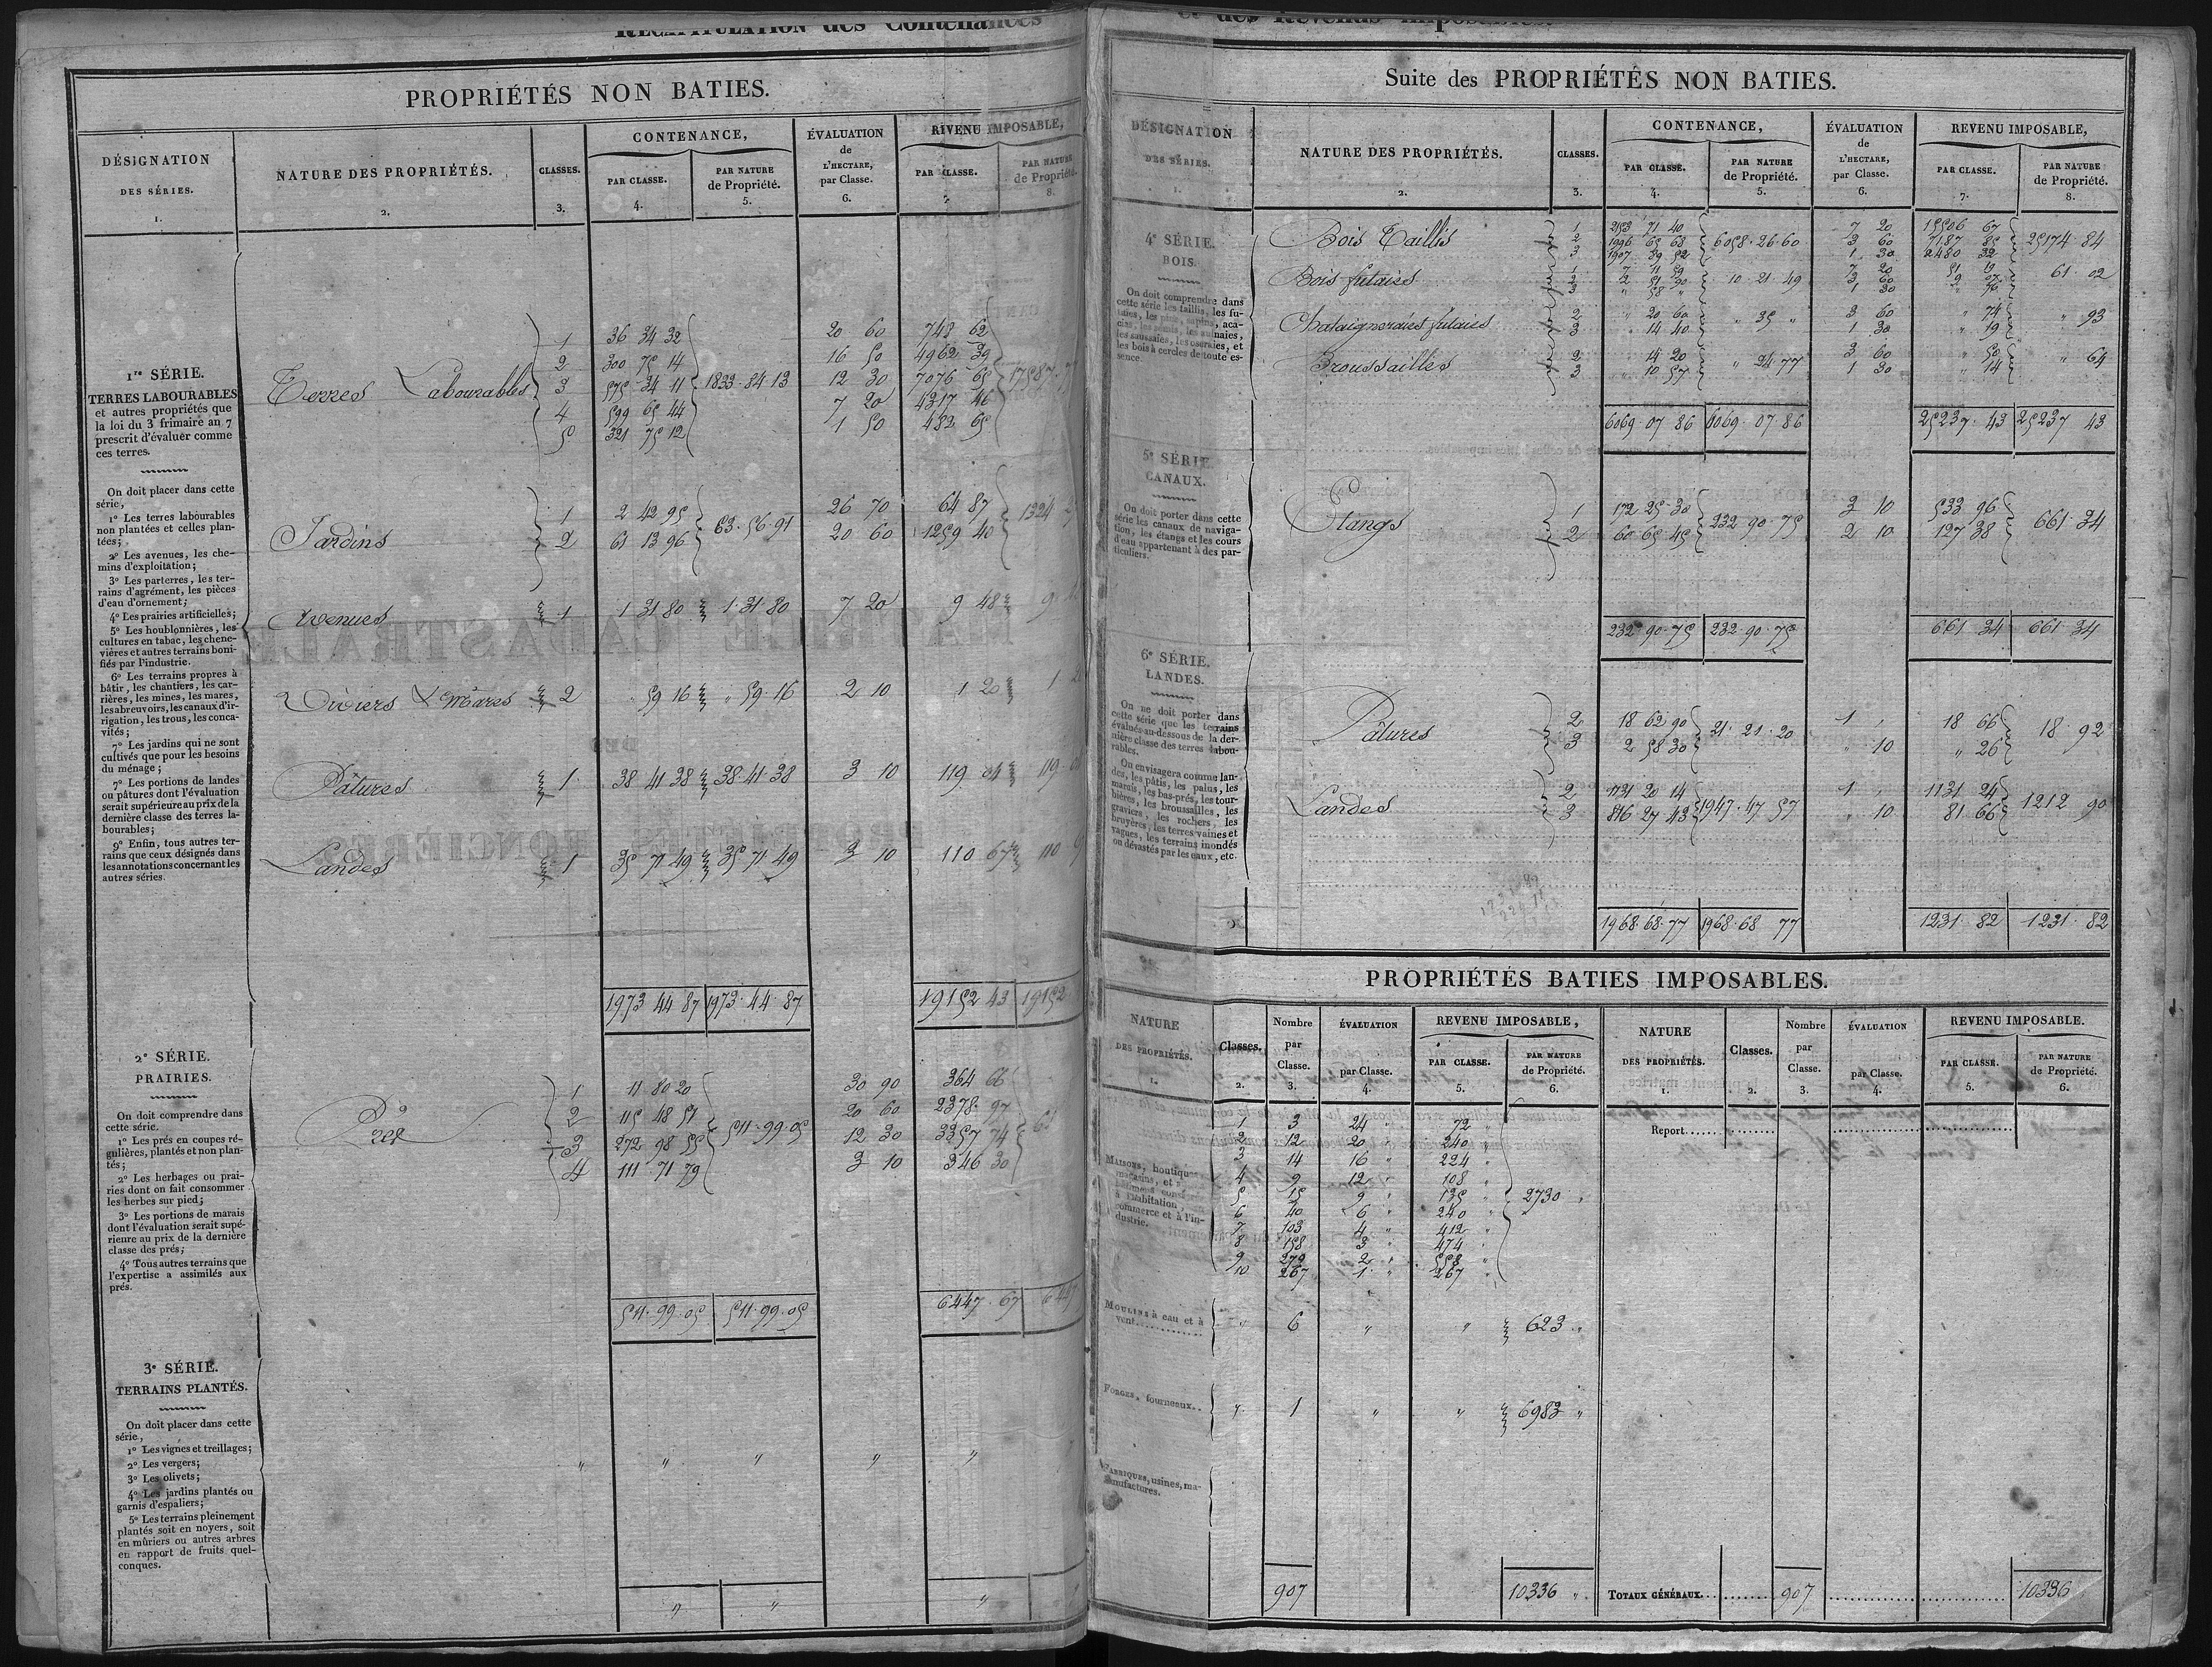 RÉCAPITULATION des Contenances
PROPRIÉTÉS NON BATIES.
DÉSIGNATION
DES SÉRIES.
1.
NATURE DES PROPRIÉTÉS.
2.
CLASSES.
3.
CONTENANCE,
PAR CLASSE.
4.
PAR NATURE
de Propriété.
5.
ÉVALUATION
de
L'HECTARE,
par Classe.
6.
REVENU IMPOSABLE,
PAR CLASSE.
7.
PAR NATURE
de Propriété.
8.
1re SÉRIE.
TERRES LABOURABLES
et autres propriétés que
la loi du 3 frimaire an 7
prescrit d'évaluer comme
ces terres.
On doit placer dans cette
série,
1° Les terres labourables
non plantées et celles plan-
tées;
2° Les avenues, les che-
mins d'exploitation;
3° Les parterres, les ter-
rains d'agrément, les pièces
d'eau d'ornement;
4° Les prairies artificielles;
5° Les houblonnières, les
cultures en tabac, les chene-
vières et autres terrains boni-
fiés par l'industrie.
6° Les terrains propres à
bâtir, les chantiers, les car-
rières, les mines, les mares,
les abreuvoirs, les canaux d'ir-
rigation, les trous, les conca-
vités;
7° Les jardins qui ne sont
cultivés que pour les besoins
du ménage;
7° Les portions de landes
ou pâtures dont l'évaluation
serait supérieure au prix de la
dernière classe des terres la-
bourables;
9° Enfin, tous autres ter-
rains que ceux désignés dans
les annotations concernant les
autres séries.
Terres Labourables
1 36 34 32 20 60 748 62
2 300 75 14 16 50 4962 39
3 575 34 11 1833·84·13 12 30 7076 65 17587·77
4 599 65 44 7 20 4317 46
5 321 75 12 1 50 482 65
Jardins
1 2 42 95 26 70 64 87
2 61 13 96 63·56·91 20 60 1259 40 1324
Avenues 1 1 31 80 1·31·80 7 20 9 48 9
Viviers & Mares 2 " 59 16 " 59·16 2 10 1 20 1
Pâtures 1 38 41 38 38·41·38 3 10 119 04 119
Landes 1 35 71 49 35 71 49 3 10 110 67 110
1973 44 87 1973·44·87 19152 43 19152
2e SÉRIE.
PRAIRIES.
On doit comprendre dans
cette série.
1° Les prés en coupes ré-
gulières, plantés et non plan-
tés;
2° Les herbages ou prai-
ries dont on fait consommer
les herbes sur pied;
3° Les portions de marais
dont l'évaluation serait supé-
rieure au prix de la dernière
classe des prés;
4° Tous autres terrains que
l'expertise a assimilés aux
prés.
Prés
1 11 80 20 30 90 364 66
2 115 48 51 20 60 2378 97
3 272 98 55 511·99·05 12 30 3357 74
4 111 71 79 3 10 346 30
511·99·05 511·99·05 6447·67 6447
3e SÉRIE.
TERRAINS PLANTÉS.
On doit placer dans cette
série,
1° Les vignes et treillages;
2° Les vergers;
3° Les olivets;
4° Les jardins plantés ou
garnis d'espaliers;
5° Les terrains pleinement
plantés soit en noyers, soit
en mûriers ou autres arbres
en rapport de fruits quel-
conques.
" " " " "
" " "
et des Revenus imposables.
Suite des PROPRIÉTÉS NON BATIES.
DÉSIGNATION
DES SÉRIES.
1.
NATURE DES PROPRIÉTÉS.
2.
CLASSES.
3.
CONTENANCE,
PAR CLASSE.
4.
PAR NATURE
de Propriété.
5.
ÉVALUATION
de
L'HECTARE,
par Classe.
6.
REVENU IMPOSABLE,
PAR CLASSE.
7.
PAR NATURE
de Propriété.
8.
4e SÉRIE.
BOIS.
On doit comprendre dans
cette série les taillis, les fu-
taies, les pins, sapins, aca-
cias, les semis, les aulnaies,
les saussaies, les oseraies, et
les bois à cercles de toute es-
sence.
Bois Taillis
1 2153 71 40 7 20 15506 67
2 1996 65 68 6058·26·60 3 60 7187 85 25174·84
3 1907 89 52 1 30 2480 32
Bois futaies
1 7 11 59 7 20 51 19
2 2 51 90 10·21·49 3 60 9 07 61·02
3 " 58 " 1 30 " 76
Chataigneraies futaies
2 " 20 60 3 60 " 74
3 " 14 40 " 35 " 1 30 " 19 " 93
Broussailles
2 " 14 20 3 60 " 50
3 " 10 57 " 24·77 1 30 " 14 " 64
6069·07 86 6069·07·86 25237·43 25237 43
5e SÉRIE
CANAUX.
On doit porter dans cette
série les canaux de naviga-
tion, les étangs et les cours
d'eau appartenant à des par-
ticuliers.
Etangs
1 172 25 30 3 10 533 96
2 60 65 45 232·90·75 2 10 127 38 661·34
232·90·75 232·90·75 661 34 661·34
6e SÉRIE.
LANDES.
On ne doit porter dans
cette série que les terrains
évalués au-dessous de la der-
nière classe des terres labou-
rables.
On envisagera comme lan-
des, les pâtis, les palus, les
marais, les bas-prés, les tour-
bières, les broussailles, les
graviers, les rochers, les
bruyères, les terres vaines et
vagues, les terrains inondés
ou dévastés par les eaux, etc.
Pâtures
2 18 62 90 1 " 18 66
3 2 58 30 21·21·20 " 10 " 26 18·92
Landes
2 1131 20 14 1 " 1131 24
3 816 27 43 1947·47·57 " 10 81 66 1212 90
1968·68·77 1968·68 77 1231·82 1231·82
PROPRIÉTÉS BATIES IMPOSABLES.
NATURE
DES PROPRIÉTÉS.
1.
Classes.
2.
Nombre
par
Classe.
3.
ÉVALUATION
par Classe.
4.
REVENU IMPOSABLE,
PAR CLASSE.
5.
PAR NATURE
de Propriété.
6.
NATURE
DES PROPRIÉTÉS.
1.
Classes.
2.
Nombre
par
Classe.
3.
ÉVALUATION
par Classe.
4.
REVENU IMPOSABLE.
PAR CLASSE.
5.
PAR NATURE
de Propriété.
6.
Report......
MAISONS, boutiques,
magasins, et
à l'habitation,
commerce et à l'in-
dustrie.
1 3 24 " 72 "
2 12 20 " 240 "
3 14 16 " 224 "
4 9 12 " 108 "
5 15 9 " 135 " 2730 "
6 40 6 " 240 "
7 103 4 " 412 "
8 158 3 " 474 "
9 279 2 " 558 "
10 267 1 " 267 "
MOULINS à eau et à
vent............. " 6 " " 623 "
FORGES, fourneaux.. " 1 " " 6983 "
FABRIQUES, usines, ma-
nufactures.
907 10336 "
TOTAUX GÉNÉRAUX 907 10336